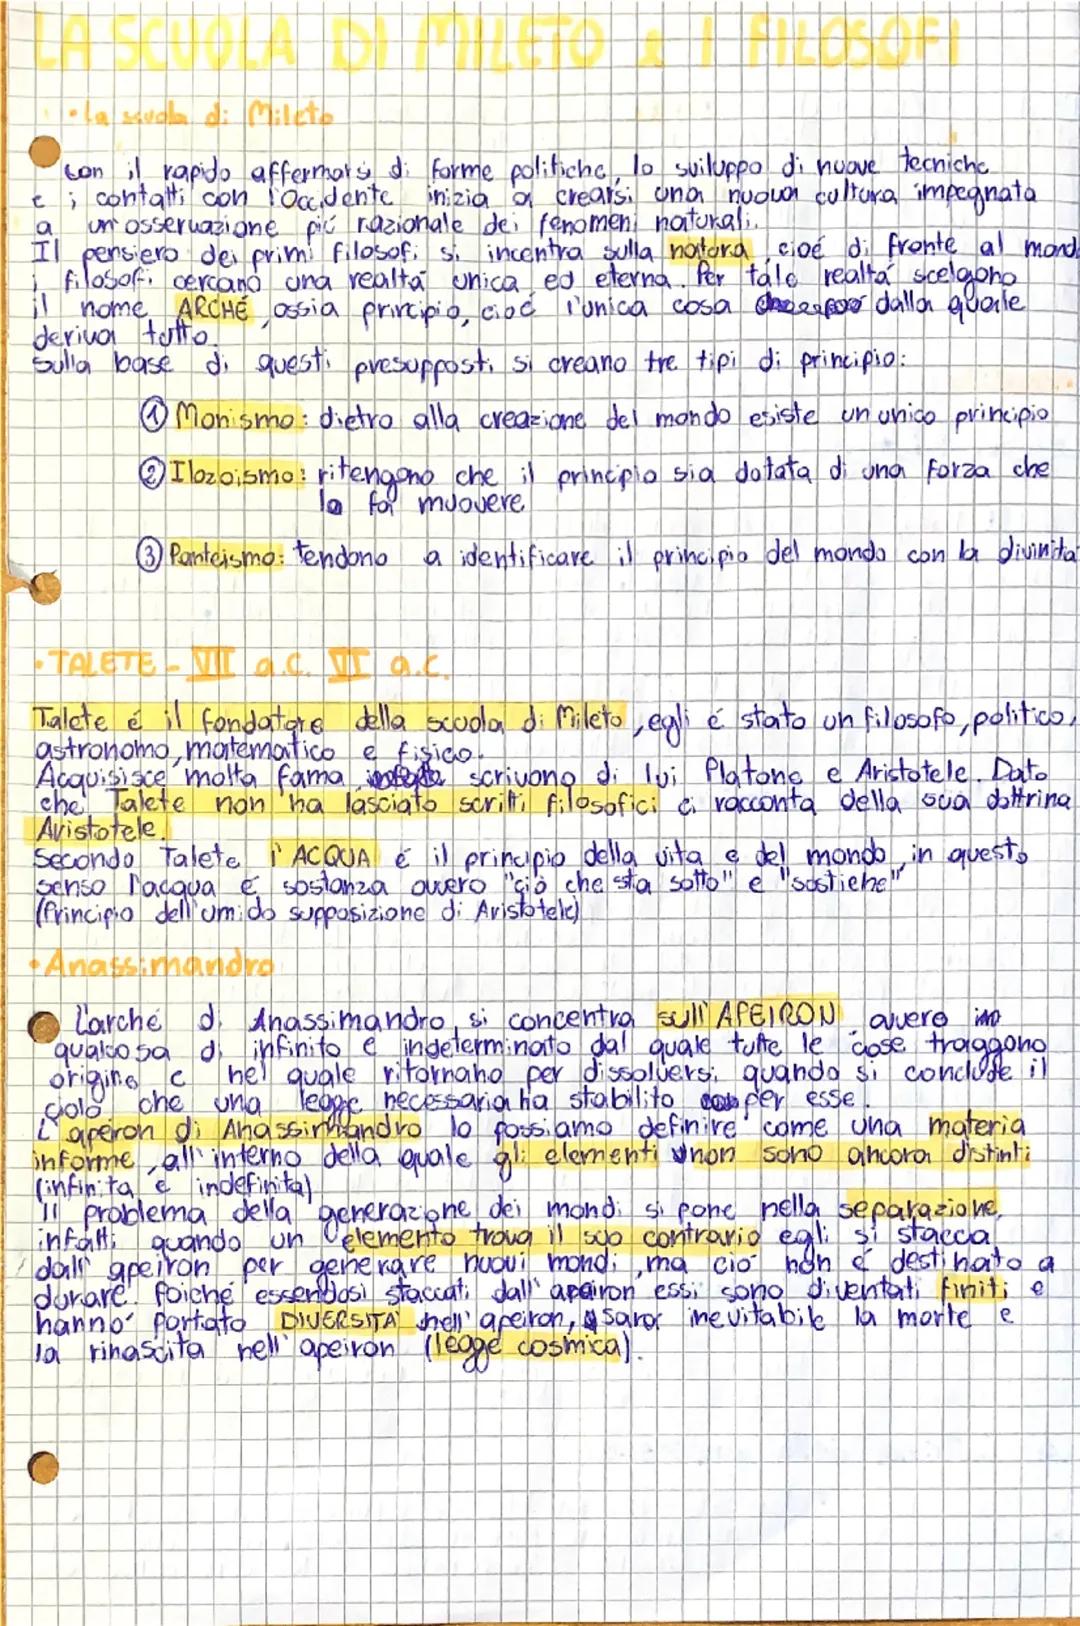 LA SCUOLA DI MILETO & I FILOSOFI
• la scuola di Mileto
con il rapido affermarsi di forme politiche, lo sviluppo di nuove tecniche
e i contatti con l'Occidente inizia a crearsi una nuova cultura impegnata
a un'osservazione più razionale dei fenomeni naturali.
Il pensiero dei primi filosofi si incentra sulla natura, cioé di fronte al mondo
i filosofi cercano una realtá unica ed eterna. Per tale realtá scelgono
il nome ARCHÉ, ossia principio, cioé l'unica cosa dalla quale
deriva tutto.
Sulla base di questi presupposti si creano tre tipi di principio:
① Monismo: dietro alla creazione del mondo esiste un unico principio
② Ilozoismo: ritengono che il principio sia dotata di una forza che
la fa muovere
③ Panteismo: tendono a identificare il principio del mondo con la divinitá
• TALETE - VII a.C. VI a.C.
Talete é il fondatore della scuola di Mileto, egli é stato un filosofo, politico,
astronomo, matematico e fisico.
Acquisisce molta fama scrivono di lui Platone e Aristotele. Dato
che Talete non ha lasciato scritti filosofici ci racconta della sua dottrina
Aristotele.
Secondo Talete l'ACQUA é il principio della vita e del mondo, in questo
senso l'acqua é sostanza ovvero "ció che sta sotto" e "sostiene"
(Principio dell'umido supposizione di Aristotele)
• Anassimandro
L'arché di Anassimandro, si concentra sull'APEIRON ovvero
qualcosa di infinito e indeterminato dal quale tutte le cose traggono
origine e nel quale ritornano per dissolversi, quando si conclude il
ciclo che una legge necessaria ha stabilito per esse.
L'aperon di Anassimandro lo possiamo definire come una materia
informe, all'interno della quale gli elementi non sono ancora distinti
(infinita e indefinita)
Il problema della generazione dei mondi si pone nella separazione,
infatti quando un elemento trova il suo contrario egli si stacca
dall'apeiron per generare nuovi mondi, ma ció non é destinato a
durare. Poiché essendosi staccati dall'apeiron essi sono diventati finiti e
hanno portato DIVERSITÁ nell'apeiron, sará inevitabile la morte e
la rinascita nell'apeiron (legge cosmica).